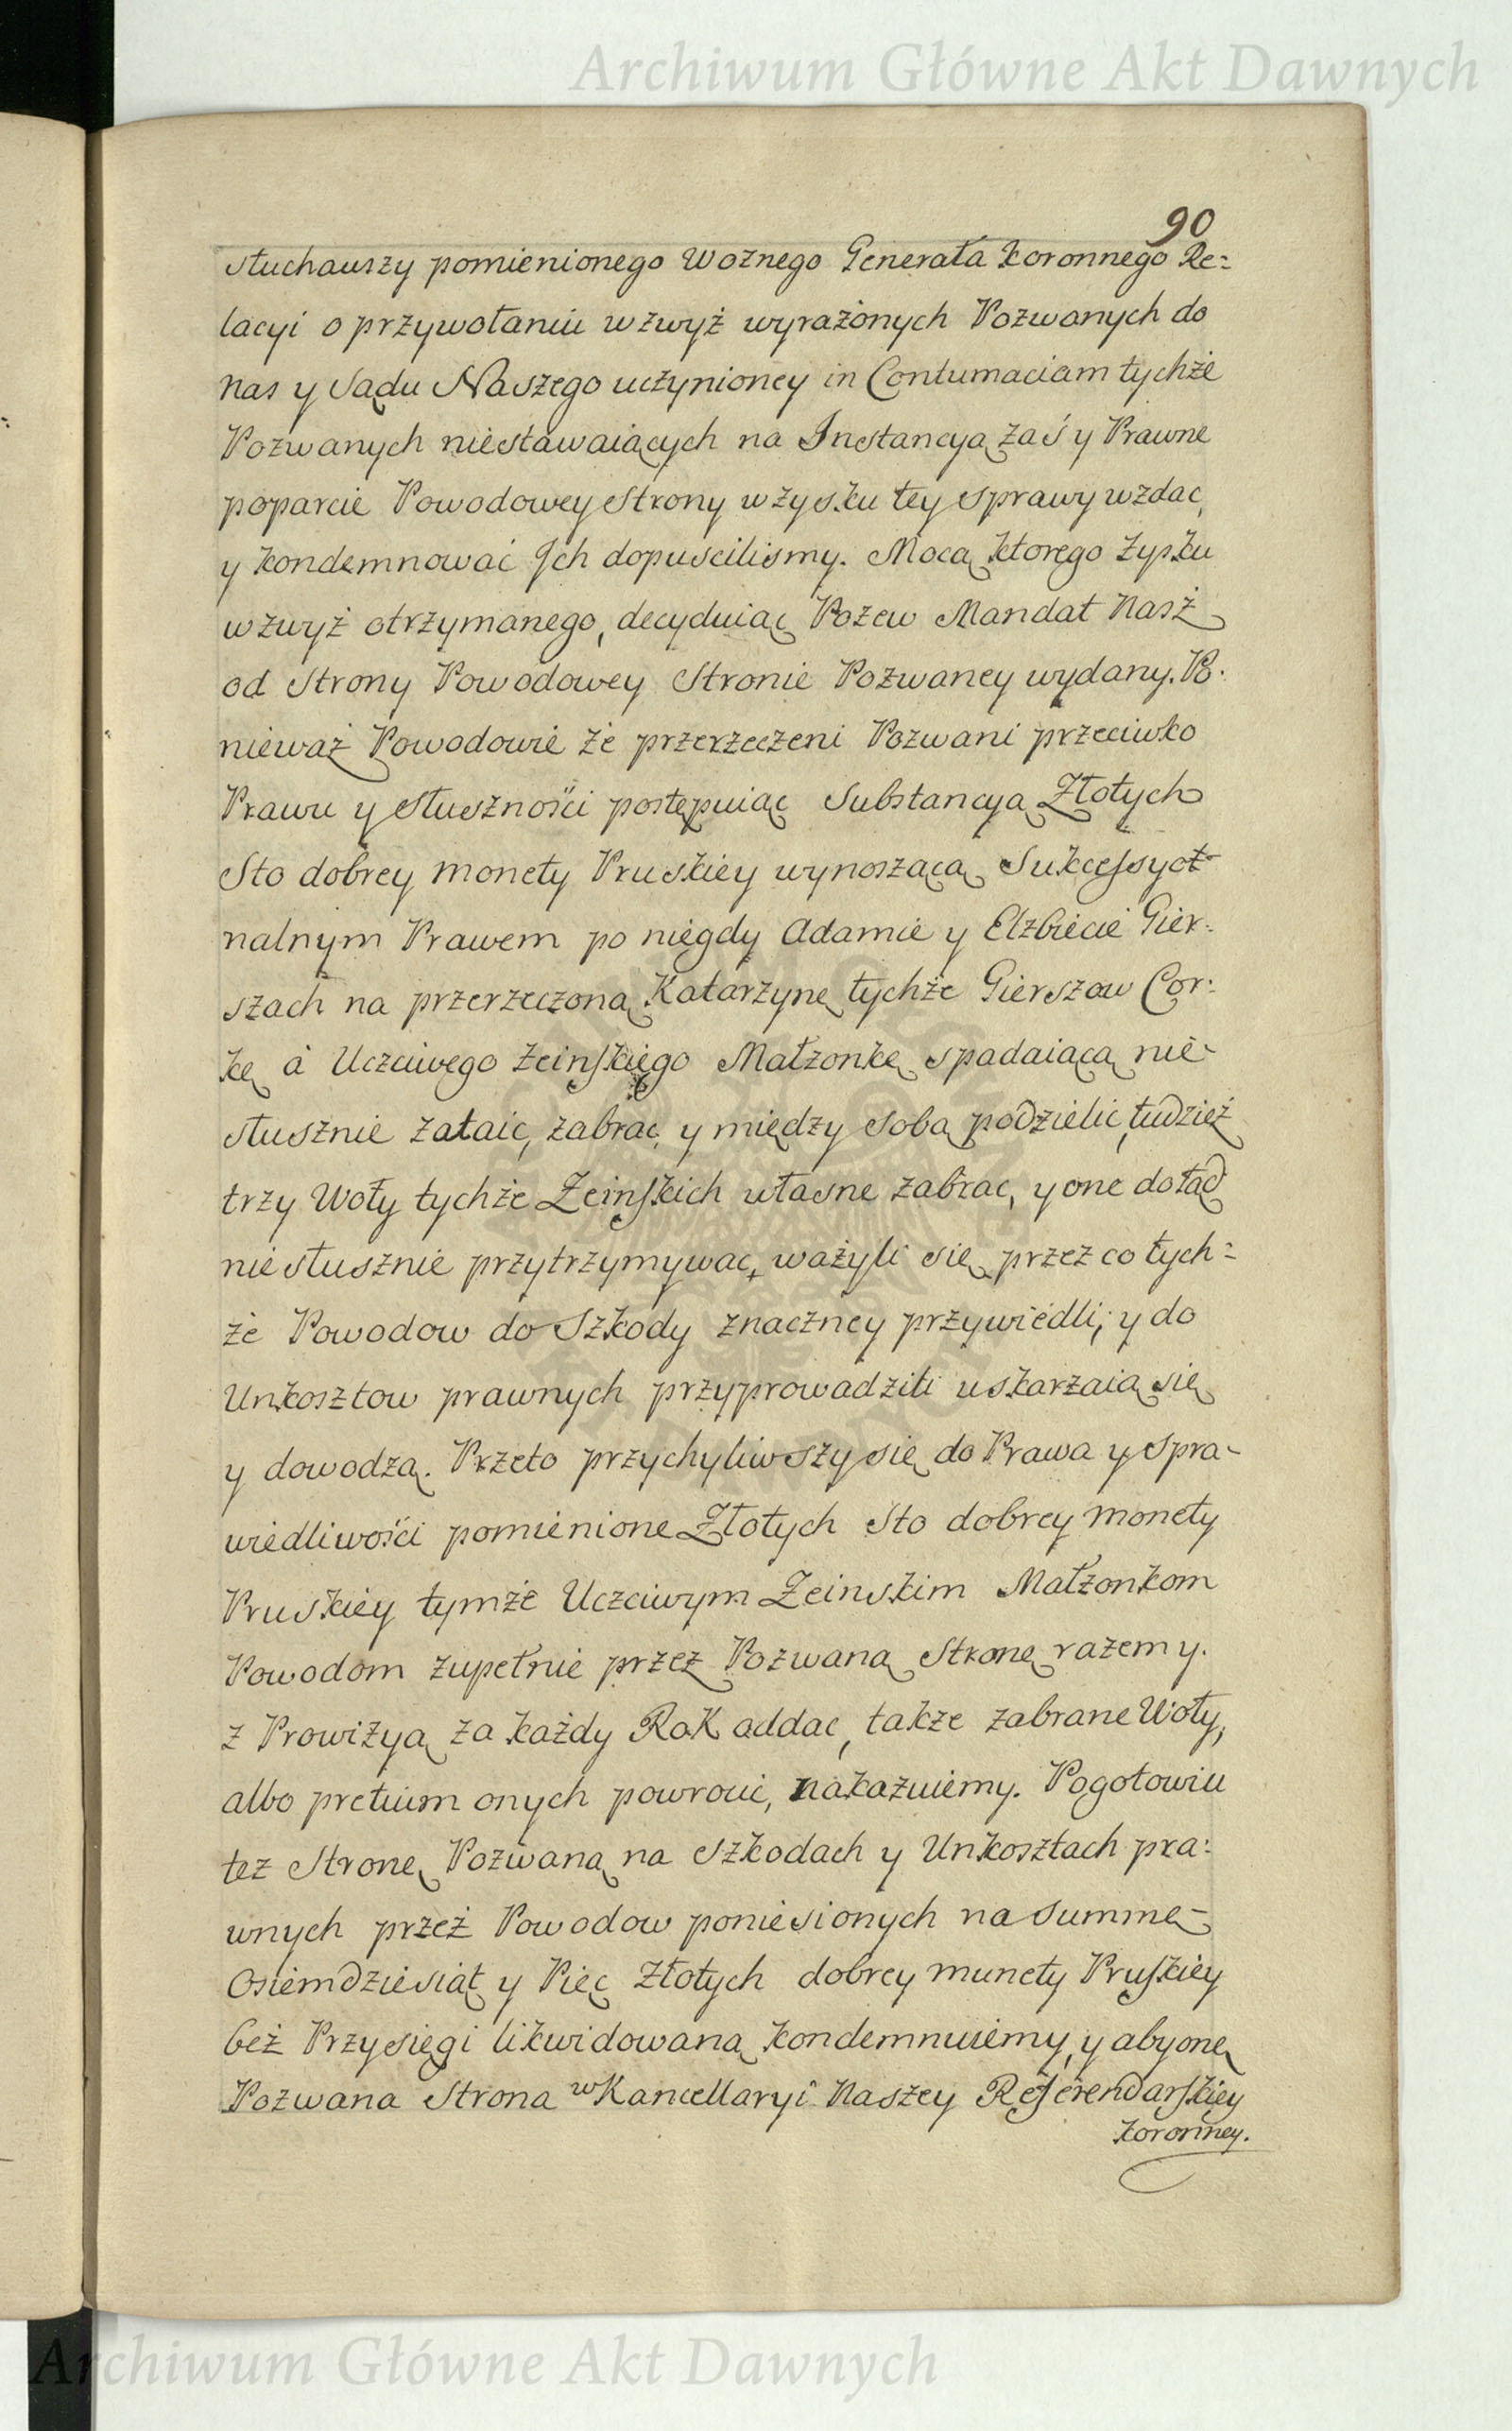 Archiwum Główne Akt Dawnych
90
słuchauszy pomienionego Woznego Generała koronnego Re=
lacyi o przywołaniu wzwyż wyrażonych Pozwanych do
nas y Sądu Naszego uczynioney in Contumaciam tychże
Pozwanych niestawaiących na Instancyą zaś y Prawne
poparcie Powodowey Strony w zysku tey sprawy wzdac,
y kondemnować Ich dopuscilismy. Mocą ktorego zysku
wzwyż otrzymanego, decyduiąc Pozew Mandat Nasz
od Strony Powodowey Stronie Pozwaney wydany. Po.
nieważ Powodowie że przerzeczeni Pozwani przeciwko
Prawu y słuszności postępuiąc Substancyą Złotych
Sto dobrey monety Pruskiey wynoszącą Sukcessyo-
nalnym Prawem po niegdy Adamie y Elzbiecie Gier:
szach na przerzeczoną Katarzynę tychże Gierszow Cor:
kę à Uczciwego Zeinskiego Małzonkę spadaiącą nie-
słusznie zataic, zabrac, y między sobą podzielic, tudzież
trzy Woły tychże Zeinskich własne zabrac, y one dotąd
niesłusznie przytrzymywac, ważyli się, przez co tych=
że Powodow do Szkody znaczney przywiedli, y do
Unkosztow prawnych przyprowadzili uskarzaią się
y dowodzą. Przeto przychyliwszy się do Prawa y spra-
wiedliwości pomienione Złotych Sto dobrey monety
Pruskiey tymże Uczciwym Zeinskim Małzonkom
Powodom zupełnie przez Pozwaną Stronę razem y.
z Prowizyą za każdy Rok oddac, takze zabrane Woły,
albo pretium onych powrocic, nakazuiemy. Pogotowiu
tez Stronę Pozwaną na Szkodach y Unkosztach pra:
wnych przeż Powodow poniesionych na Summę-
Osiemdziesiąt y Pięc Złotych dobrey munety Pruskiey
beż Przysięgi likwidowaną kondemnuiemy, y aby onę
Pozwana Strona w Kancellaryi Naszey Referendarskiey
koronney.
Archiwum Główne Akt Dawnych